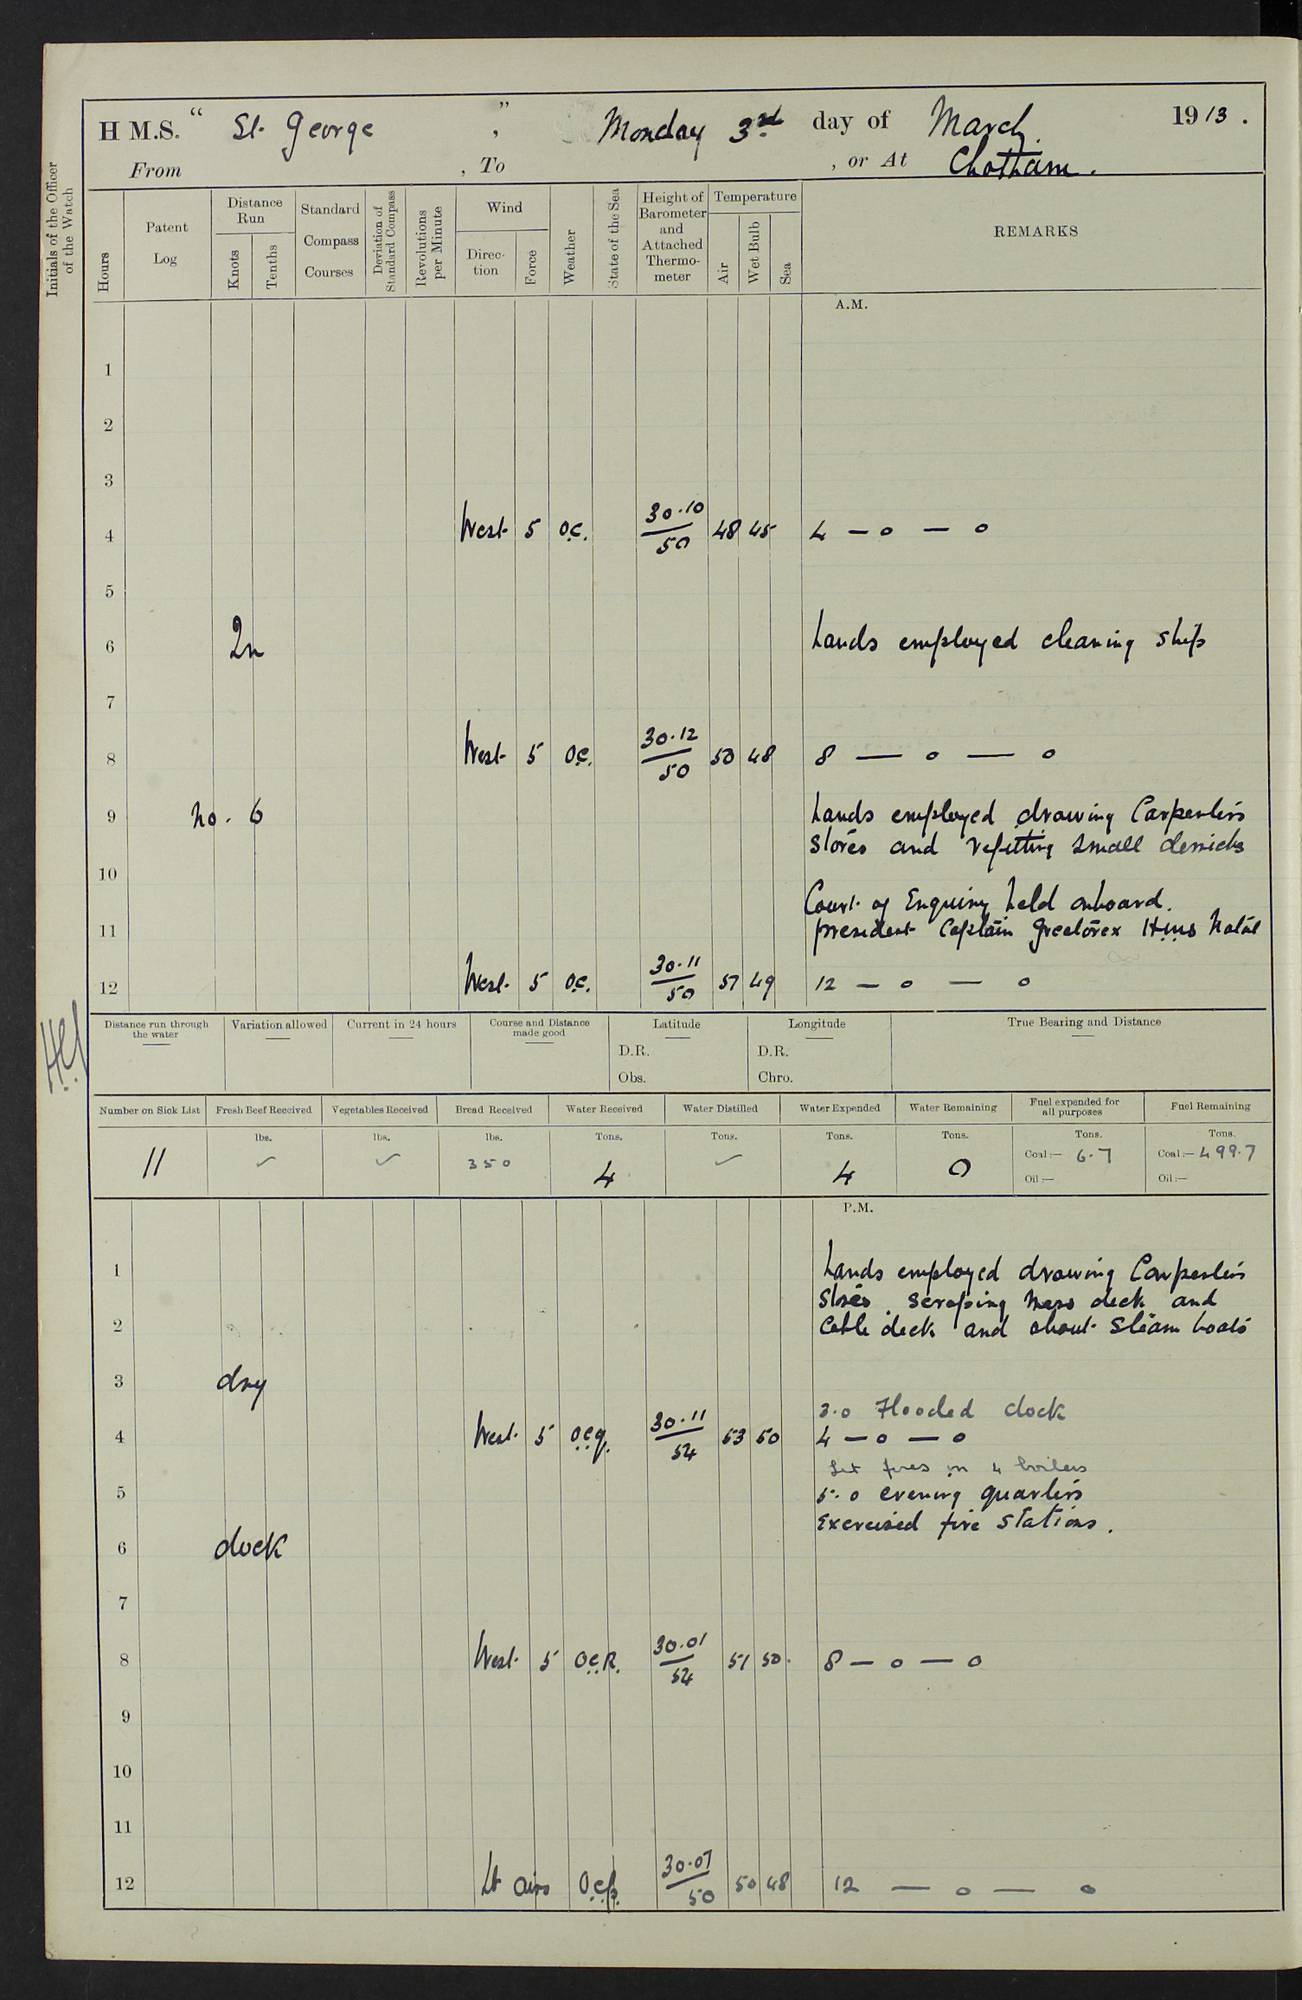 H M.S. “ St. George ” , Monday 3rd day of March 1913.
From , To , or At Chatham.
Initials of the Officer of the Watch
Hours
Patent Log
Distance Run
Knots
Tenths
Standard Compass Courses
Deviation of Standard Compass
Revolutions per Minute
Wind
Direction
Force
Weather
State of the Sea
Height of Barometer and Attached Thermometer
Temperature
Air
Wet Bulb
Sea
REMARKS
A.M.
1
2
3
4 West 5 o.c. 30.10/50 48 45 4 — o — o
5
6 In hands employed cleaning ship
7
8 West 5 o.c. 30.12/50 50 48 8 — o — o
9 No. 6 hands employed drawing Carpenters
stores and refitting small derricks
10
Court of Enquiry held onboard.
11 president Captain Greatorex HMS Natal
12 West 5 o.c. 30.11/50 51 49 12 — o — o
Distance run through the water
Variation allowed
Current in 24 hours
Course and Distance made good
Latitude
D.R.
Obs.
Longitude
D.R.
Chro.
True Bearing and Distance
Number on Sick List
Fresh Beef Received
Vegetables Received
Bread Received
Water Received
Water Distilled
Water Expended
Water Remaining
Fuel expended for all purposes
Fuel Remaining
lbs. lbs. lbs. Tons. Tons. Tons. Tons. Tons. Tons.
11 ✓ ✓ 350 4 ✓ 4 0 Coal:— 6.7 Coal:— 499.7
Oil:— Oil:—
P.M.
1 hands employed drawing Carpenters
stores. scraping mess deck and
2 cable deck and about steam boats
3 dry
3.0 Flooded dock
4 West 5 o.c.q. 30.11/54 53 50 4 — o — o
Lit fires in 4 boilers
5 5.0 evening quarters
Exercised fire stations.
6 dock
7
8 West 5 o.c.R. 30.01/54 51 50 8 — o — o
9
10
11
12 Lt airs o.c.p. 30.07/50 50 48 12 — o — o